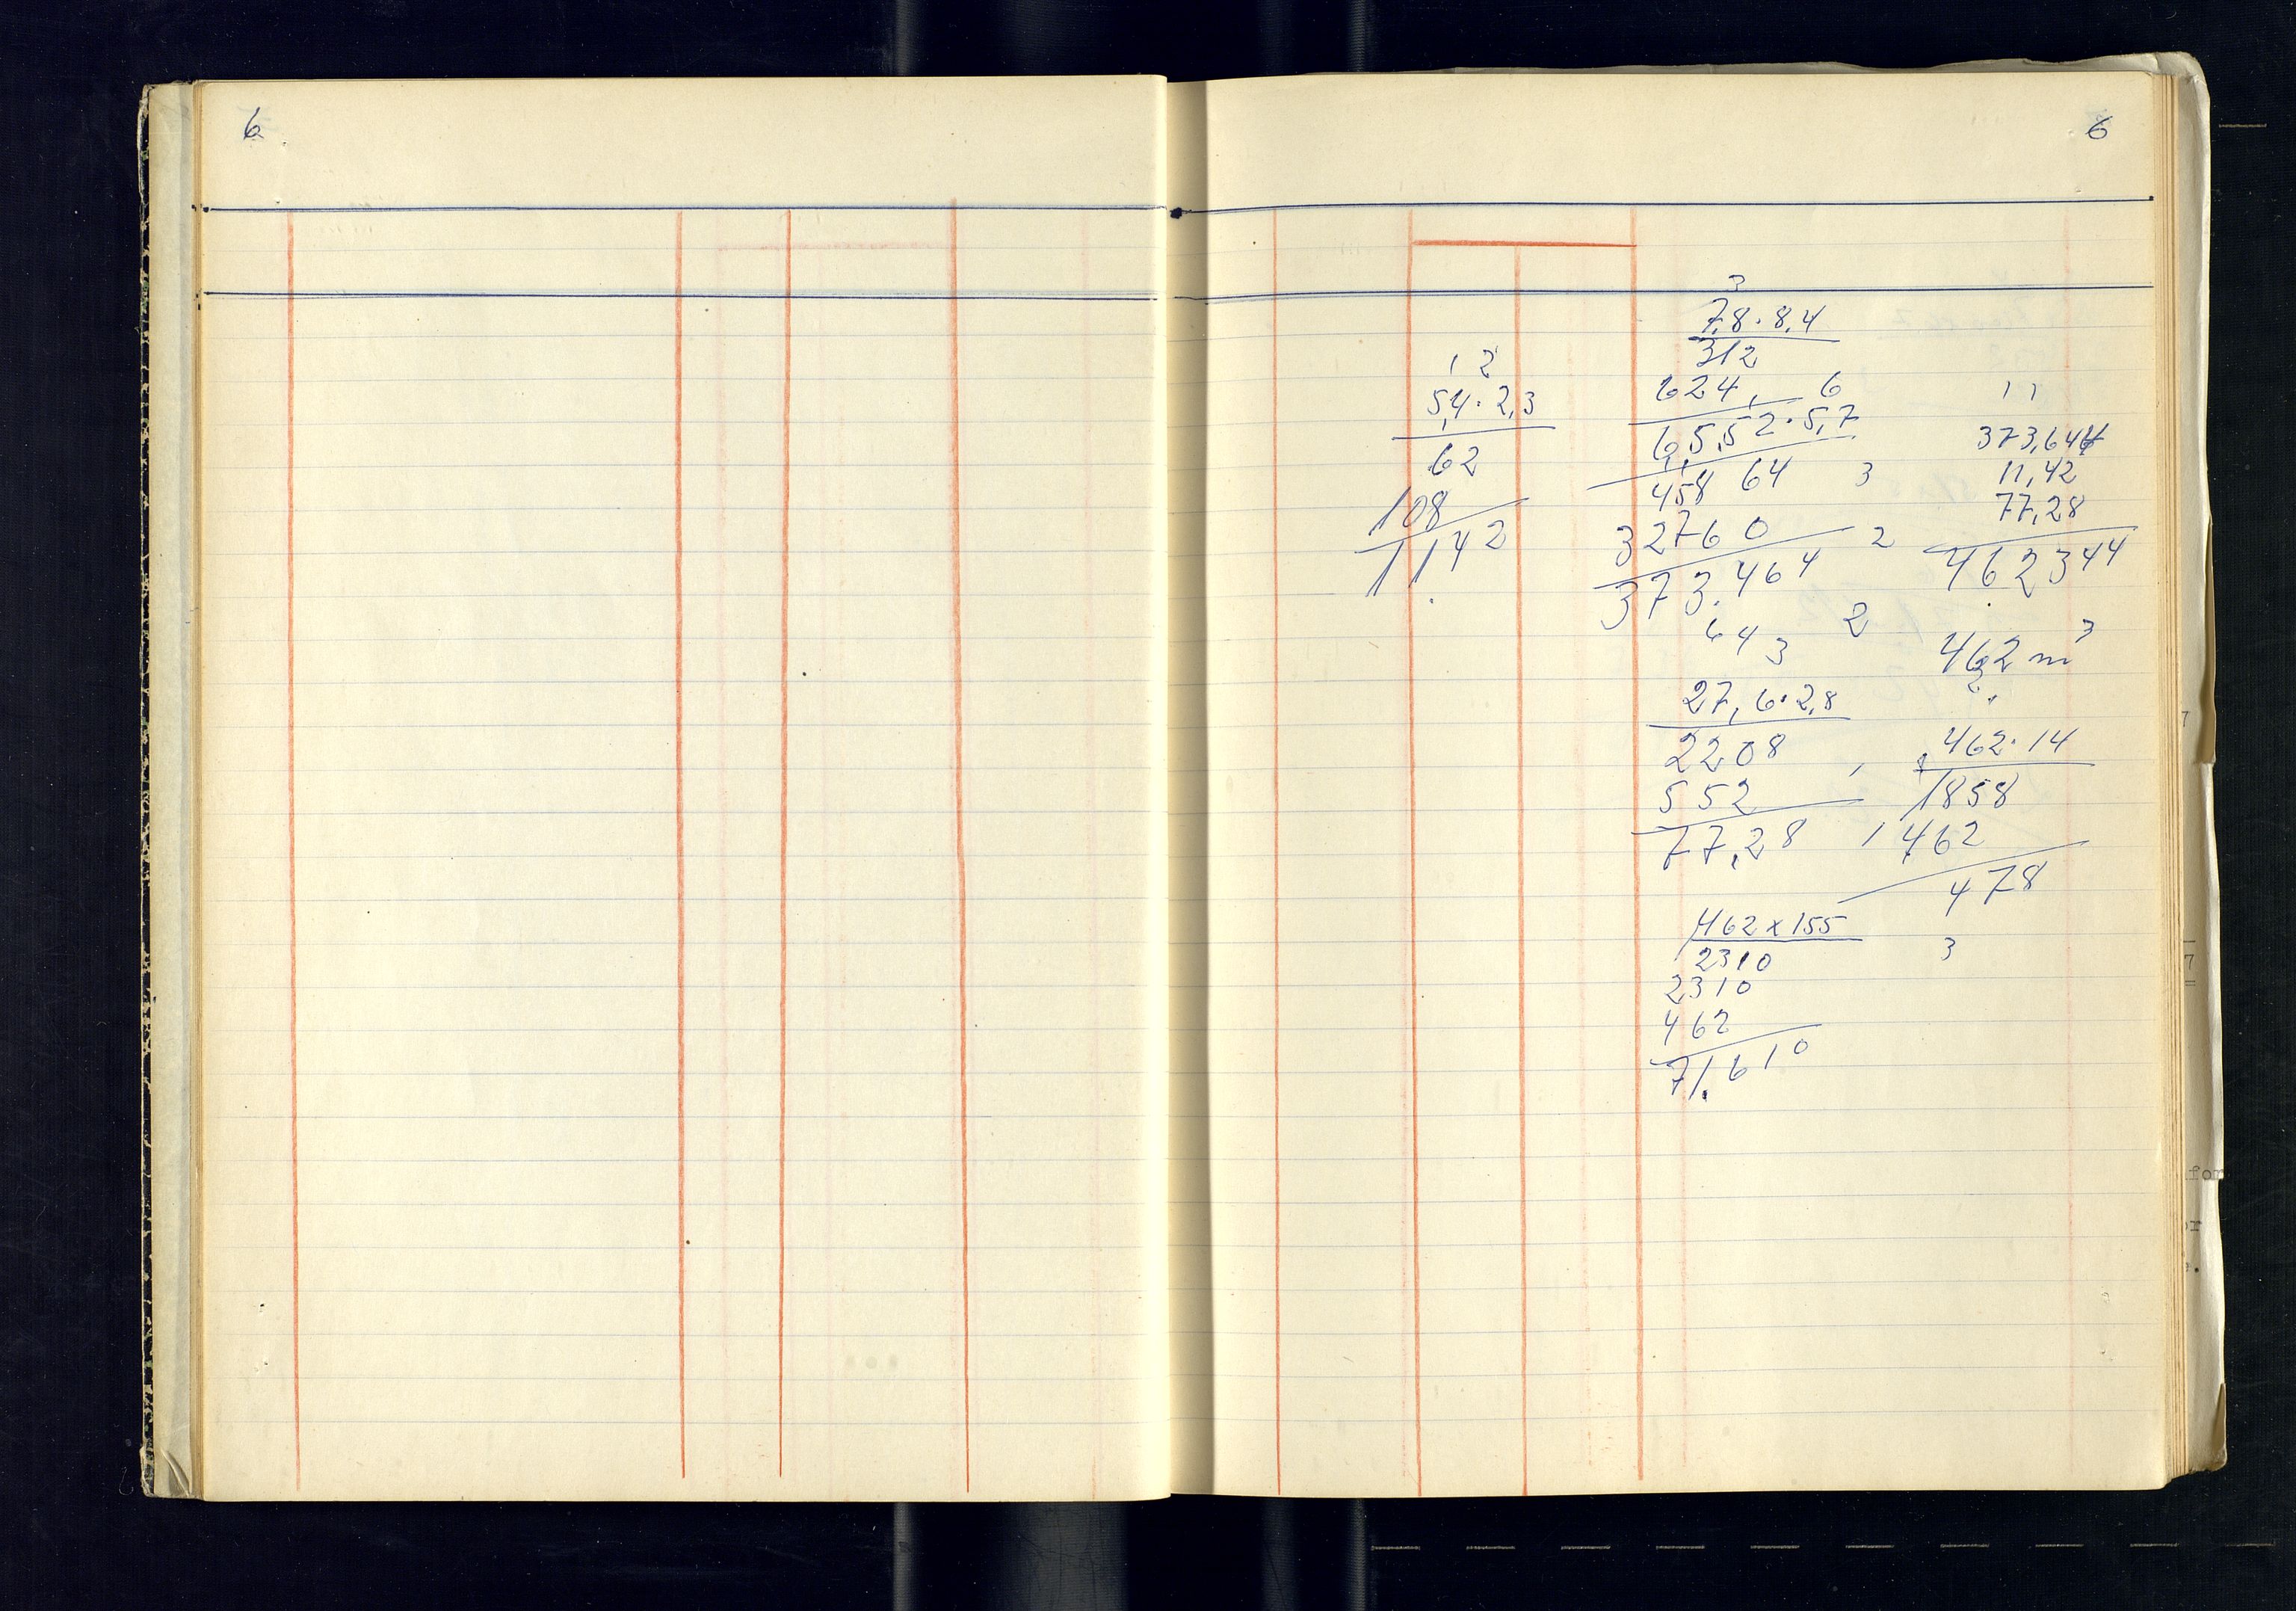 6
6
3
7,8 · 8,4
312
624, 6
6,5,52 · 5,7
458 64 3
32760 2
373.464 2
6 4 3
27,6 · 2,8
2208
552
77,28
462 x 155
2310
2310
462
71.610
1 2
5,4 · 2,3
62
108
1142
1 1
373,644
11,42
77,28
462344
462 m³
2
462 · 14
1858
1 462
478
3